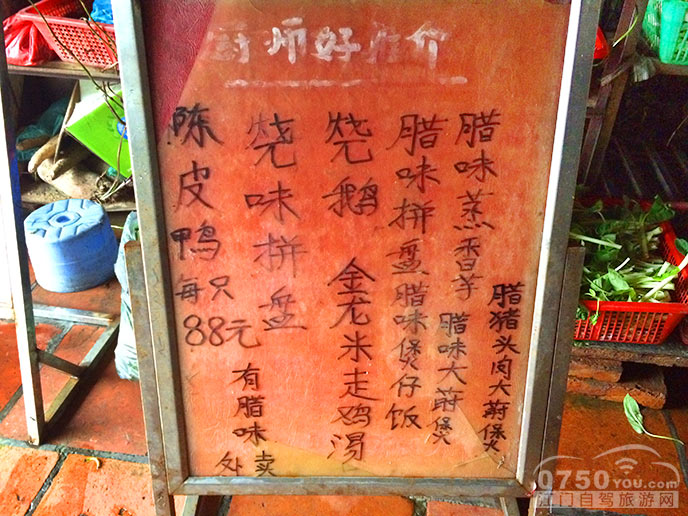 厨师好推介
陈皮鸭
每只
88元
烧味拼盘
有腊味
外卖
烧鹅
金龙米走鸡汤
腊味拼盘
腊味煲仔饭
腊味蒸香芋
腊味大蔚煲
腊猪头肉大蔚煲
0750YOU.com
江门自驾旅游网